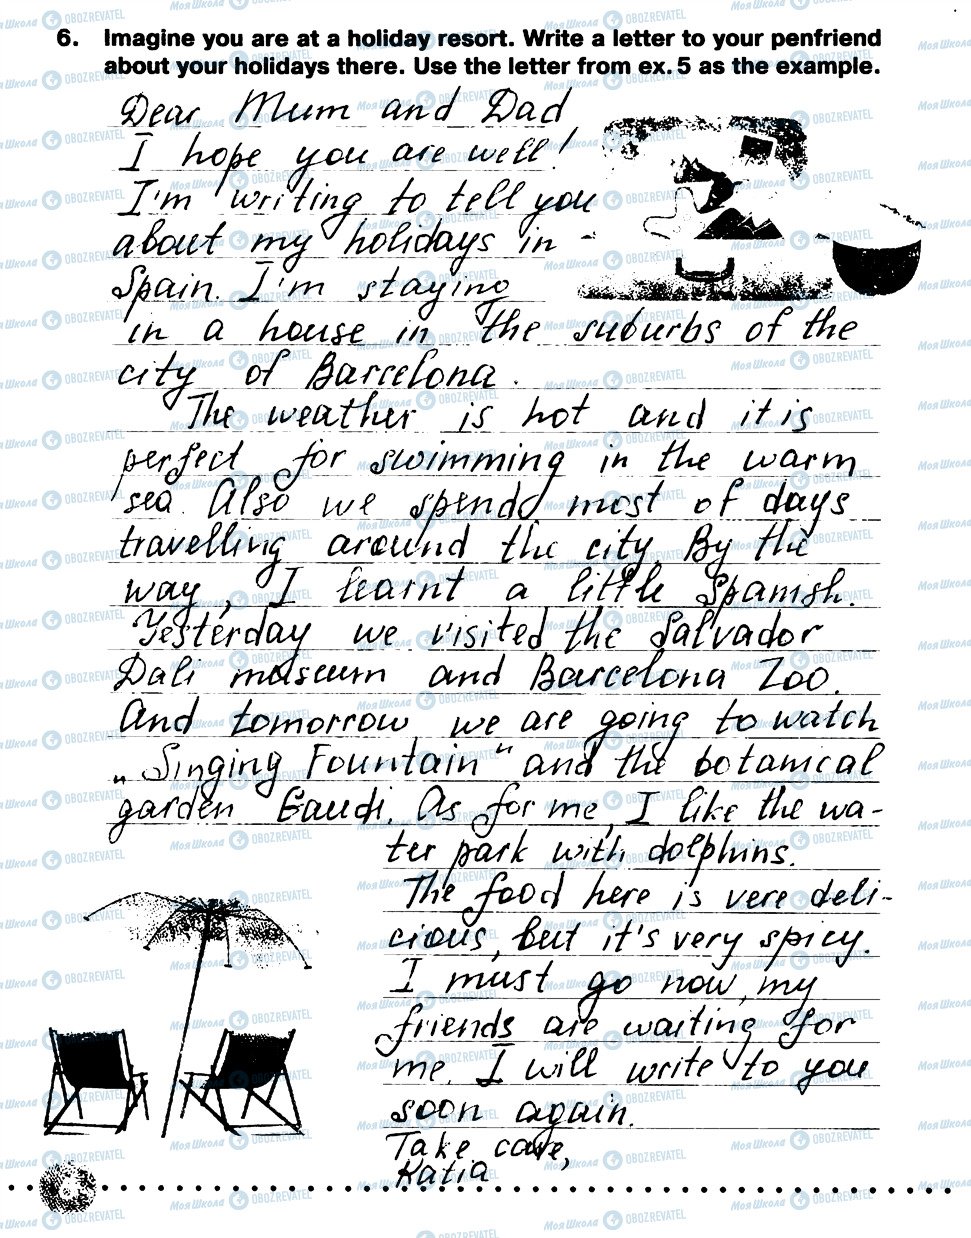 6. Imagine you are at a holiday resort. Write a letter to your penfriend
about your holidays there. Use the letter from ex. 5 as the example.
Dear Mum and Dad
I hope you are well!
I'm writing to tell you
about my holidays in
Spain. I'm staying
in a house in the suburbs of the
city of Barcelona.
The weather is hot and it is
perfect for swimming in the warm
sea. Also we spend most of days
travelling around the city. By the
way, I learnt a little Spanish.
Yesterday we visited the Salvador
Dali museum and Barcelona Zoo.
And tomorrow we are going to watch
„Singing Fountain" and the botanical
garden Gaudi. As for me, I like the wa-
ter park with dolphins.
The food here is vere deli-
cious, but it's very spicy.
I must go now, my
friends are waiting for
me. I will write to you
soon again.
Take care,
Katia